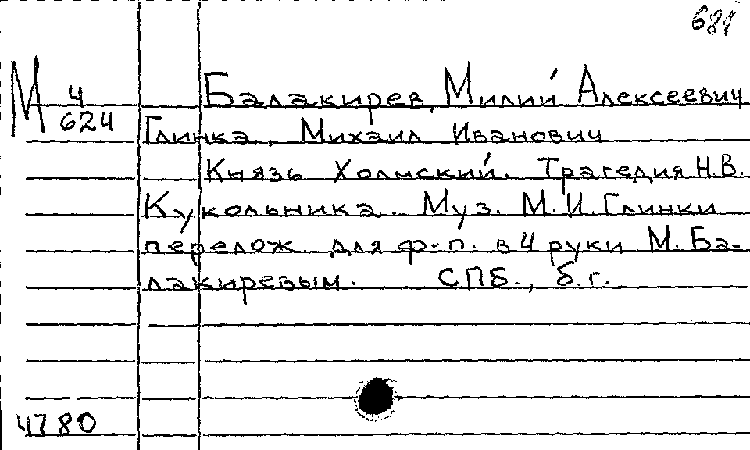 681
М 4
624
Балакирев, Милий Алексеевич
Глинка, Михаил Иванович
Князь Холмский. Трагедия Н.В.
Кукольника. Муз. М.И. Глинки
перелож. для ф-п. в 4 руки М. Ба-
лакиревым. СПБ., б.г.
4780